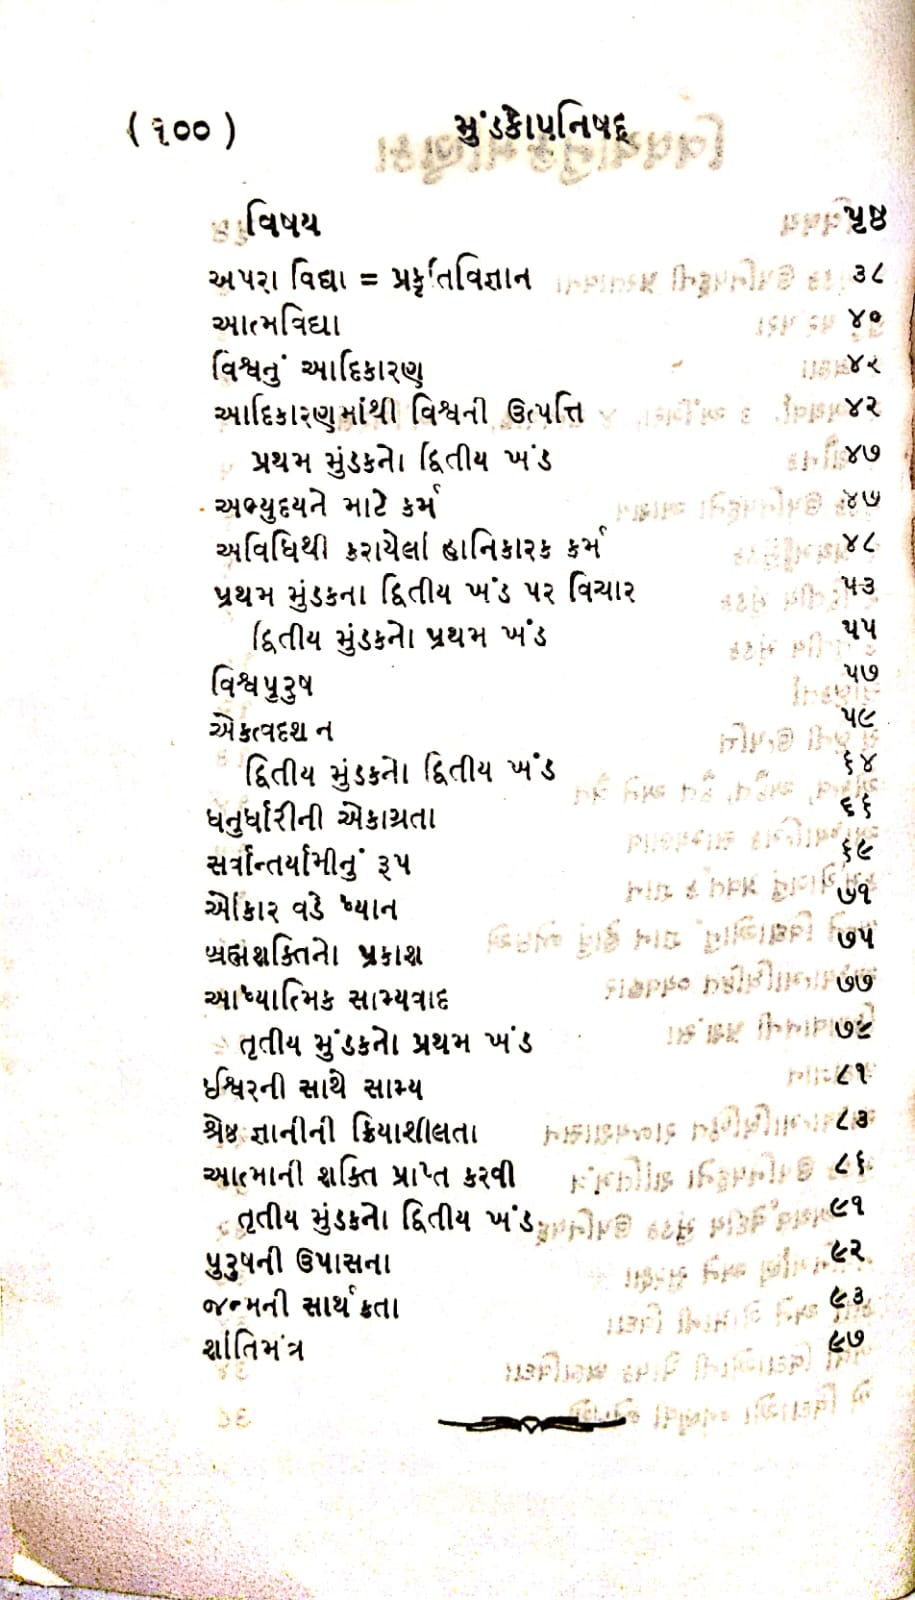 ( ૧૦૦ ) મુંડકોપનિષદ્
વિષય પૃષ્ઠ
અપરા વિદ્યા = પ્રકૃતિવિજ્ઞાન ૩૮
આત્મવિદ્યા ૪૦
વિશ્વનું આદિકારણ ૪૨
આદિકારણમાંથી વિશ્વની ઉત્પત્તિ ૪૨
પ્રથમ મુંડકનો દ્વિતીય ખંડ ૪૭
અભ્યુદયને માટે કર્મ ૪૭
અવિધિથી કરાયેલાં હાનિકારક કર્મ ૪૮
પ્રથમ મુંડકના દ્વિતીય ખંડ પર વિચાર ૫૩
દ્વિતીય મુંડકનો પ્રથમ ખંડ ૫૫
વિશ્વપુરુષ ૫૭
એકત્વદર્શન ૫૯
દ્વિતીય મુંડકનો દ્વિતીય ખંડ ૬૪
ધનુર્ધારીની એકાગ્રતા ૬૬
સર્વાન્તર્યામીનું રૂપ ૬૯
ઓંકાર વડે ધ્યાન ૭૧
બ્રહ્મશક્તિનો પ્રકાશ ૭૫
આધ્યાત્મિક સામ્યવાદ ૭૭
તૃતીય મુંડકનો પ્રથમ ખંડ ૭૯
ઈશ્વરની સાથે સામ્ય ૮૧
શ્રેષ્ઠ જ્ઞાનીની ક્રિયાશીલતા ૮૩
આત્માની શક્તિ પ્રાપ્ત કરવી ૮૬
તૃતીય મુંડકનો દ્વિતીય ખંડ ૯૧
પુરુષની ઉપાસના ૯૨
જન્મની સાર્થકતા ૯૩
શાંતિમંત્ર ૯૭